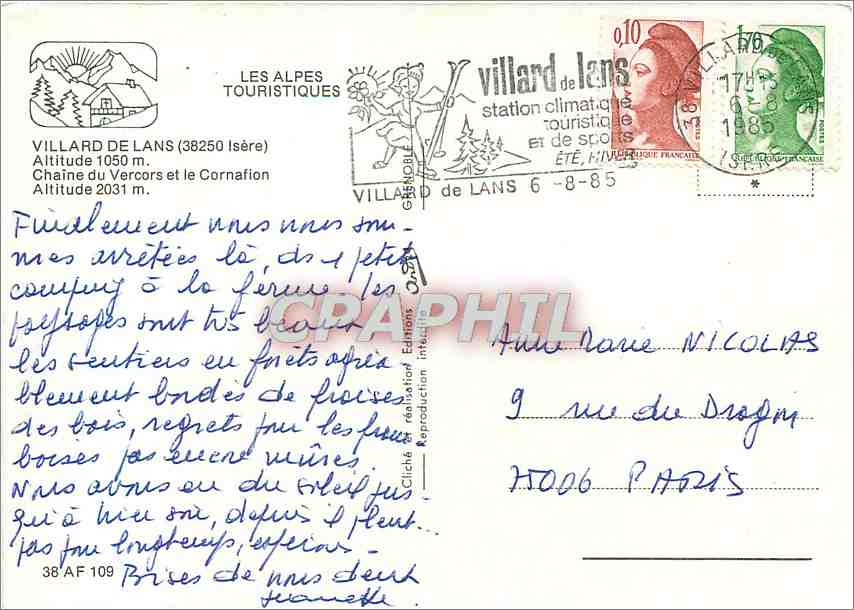 LES ALPES
TOURISTIQUES
VILLARD DE LANS (38250 Isère)
Altitude 1050 m.
Chaîne du Vercors et le Cornafion
Altitude 2031 m.
villard de lans
station climatique
touristique
et de sports
ÉTÉ, HIVER
VILLARD de LANS 6 -8-85
0,10
POSTES
RÉPUBLIQUE FRANÇAISE
1,70
POSTES
RÉPUBLIQUE FRANÇAISE
38 VILLARD de LANS
17H15
6-8
1985
ISERE
*
Finalement nous nous som-
mes arrêtées là, ds 1 petit
camping à la ferme. Les
paysages sont très beaux
les sentiers en forêts agréa
blement bordés de fraises
des bois, regrets pour les fram
boises pas encore mûres.
Nous avons eu du soleil jus-
qu'à hier soir, depuis il pleut
pas pour longtemps, espérons -
Bises de nous deux
GRENOBLE
Cliché et réalisation Editions André
Reproduction interdite
CPAPHIL
Anne Marie NICOLAS
9 rue du Dragon
75006 PARIS
38 AF 109